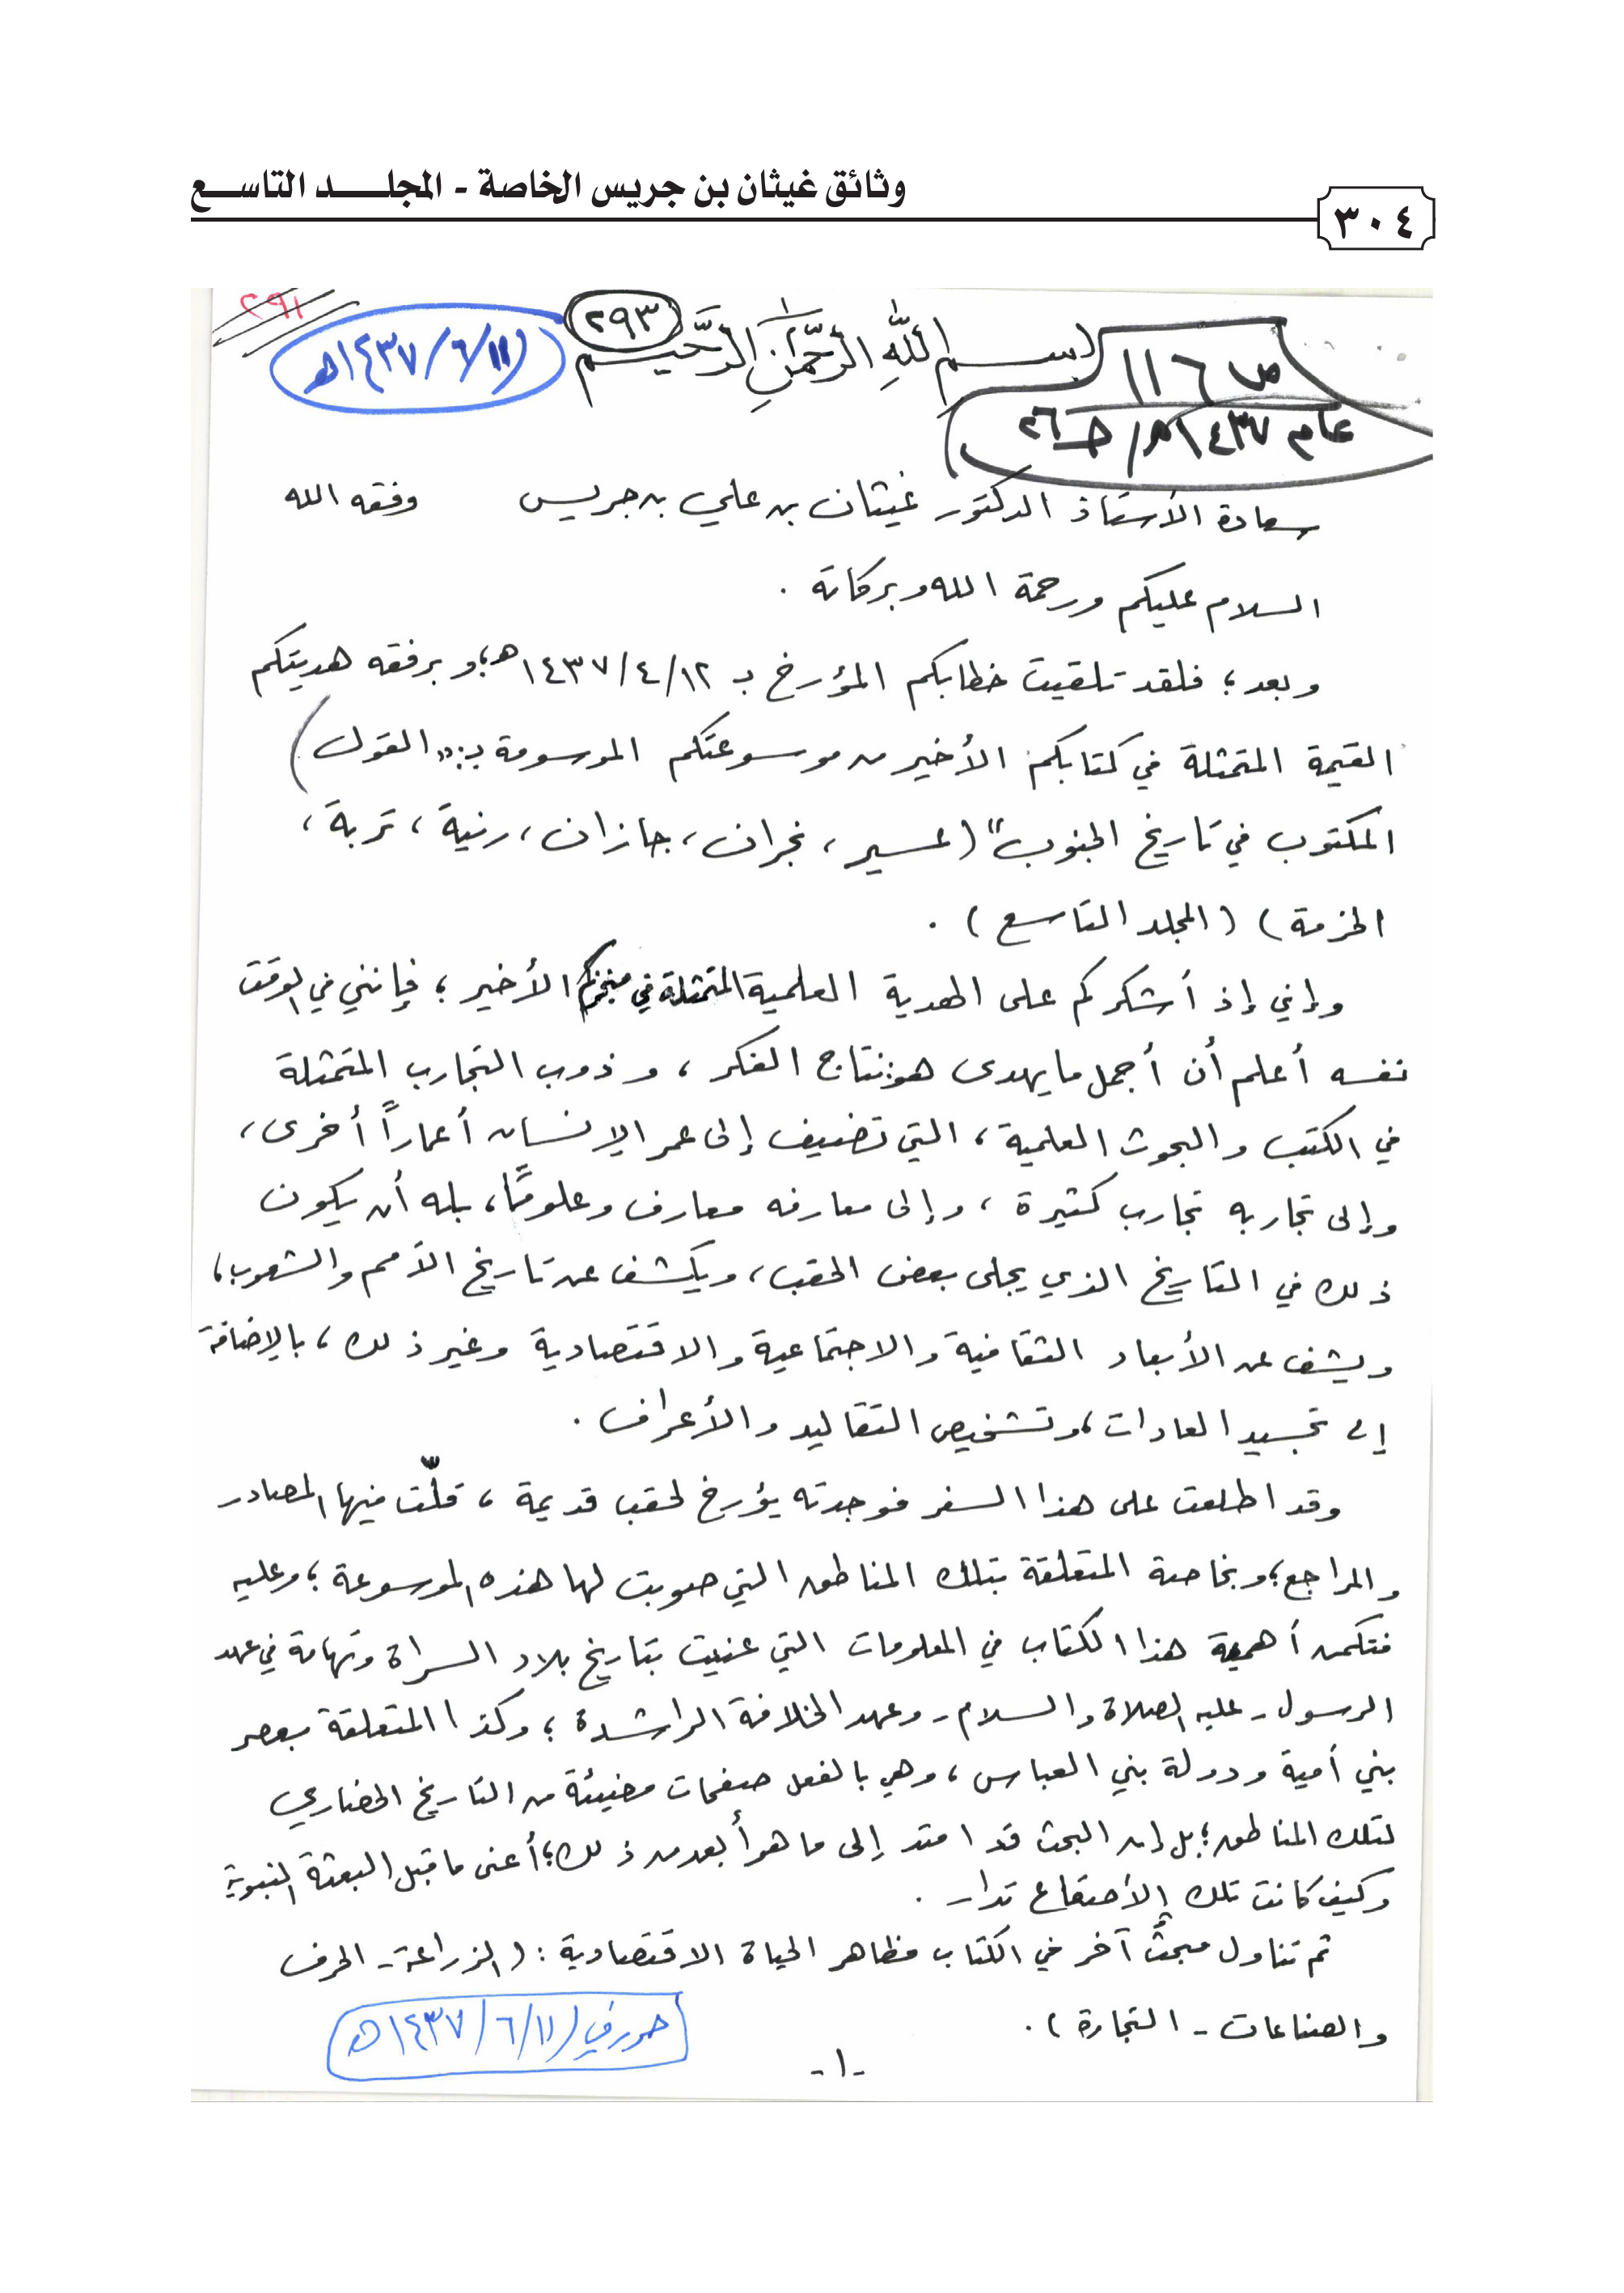 وثائق غيثان بن جريس الخاصة - المجلد التاسع
٣٠٤
٢٩١
٢٩٣
(١١/٦/١٤٣٧هـ)
بسم الله الرحمن الرحيم
ص ١١٦
عام ١٤٣٧هـ/ جـ ٢٦
سعادة الأستاذ الدكتور غيثان بن علي بن جريس وفقه الله
السلام عليكم ورحمة الله وبركاته .
وبعد ؛ فلقد تلقيت خطابكم المؤرخ بـ ١٢/٤/١٤٣٧هـ؛ وبرفقه هديتكم
القيمة المتمثلة في كتابكم الأخير من موسوعتكم الموسومة بـ: "القول
المكتوب في تاريخ الجنوب" (عسير ، نجران ، جازان ، رنية ، تربة ،
الخرمة ) ( المجلد التاسع ) .
وإني إذ أشكركم على الهدية العلمية المتمثلة في منجزكم الأخير ؛ فإنني في الوقت
نفسه أعلم أن أجمل ما يهدى هو: نتاج الفكر ، وذوب التجارب المتمثلة
في الكتب والبحوث العلمية ، التي تضيف إلى عمر الإنسان أعماراً أخرى ،
وإلى تجاربه تجارب كثيرة ، وإلى معارفه معارف وعلومًا ، بله أن يكون
ذلك في التاريخ الذي يجلى بعض الحقب ، ويكشف عن تاريخ الأمم والشعوب ،
ويشف عن الأبعاد الثقافية والاجتماعية والاقتصادية وغير ذلك ، بالإضافة
إلى تجسيد العادات ، وتشخيص التقاليد والأعراف .
وقد اطلعت على هذا السفر فوجدته يؤرخ لحقب قديمة ، قلّت فيها المصادر
والمراجع ؛ وبخاصة المتعلقة بتلك المناطق التي صوبت لها هذه الموسوعة ؛ وعليه
فتكمن أهمية هذا الكتاب في المعلومات التي عنيت بتاريخ بلاد السراة وتهامة في عهد
الرسول - عليه الصلاة والسلام - وعهد الخلافة الراشدة ؛ وكذا المتعلقة بعصر
بني أمية ودولة بني العباس ، وهي بالفعل صفحات مضيئة من التاريخ الحضاري
لتلك المناطق ؛ بل إن البحث قد امتد إلى ما هو أبعد من ذلك ؛ أعنى ما قبل البعثة النبوية
وكيف كانت تلك الأصقاع تدار .
ثم تناول مبحثٌ آخر في الكتاب مظاهر الحياة الاقتصادية : ( الزراعة - الحرف
والصناعات - التجارة ) .
حرر في (١١/٦/١٤٣٧هـ
-١-